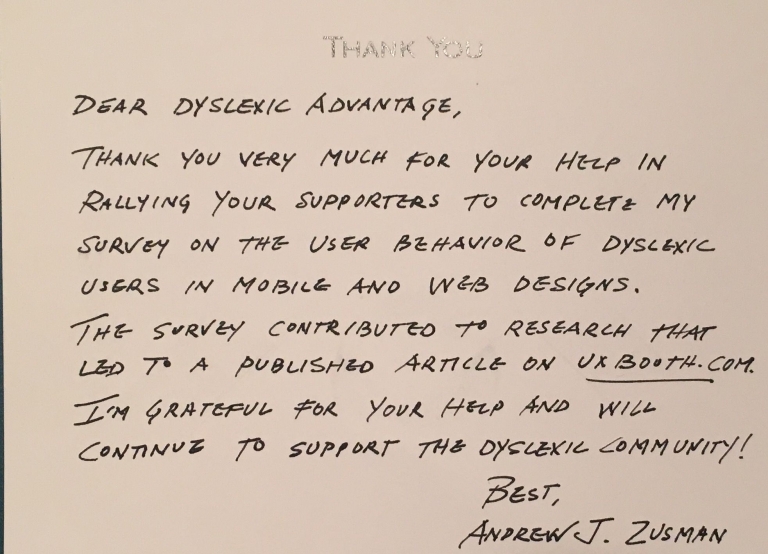 THANK YOU
DEAR DYSLEXIC ADVANTAGE,
THANK YOU VERY MUCH FOR YOUR HELP IN
RALLYING YOUR SUPPORTERS TO COMPLETE MY
SURVEY ON THE USER BEHAVIOR OF DYSLEXIC
USERS IN MOBILE AND WEB DESIGNS.
THE SURVEY CONTRIBUTED TO RESEARCH THAT
LED TO A PUBLISHED ARTICLE ON UXBOOTH.COM.
I'M GRATEFUL FOR YOUR HELP AND WILL
CONTINUE TO SUPPORT THE DYSLEXIC COMMUNITY!
BEST,
ANDREW J. ZUSMAN